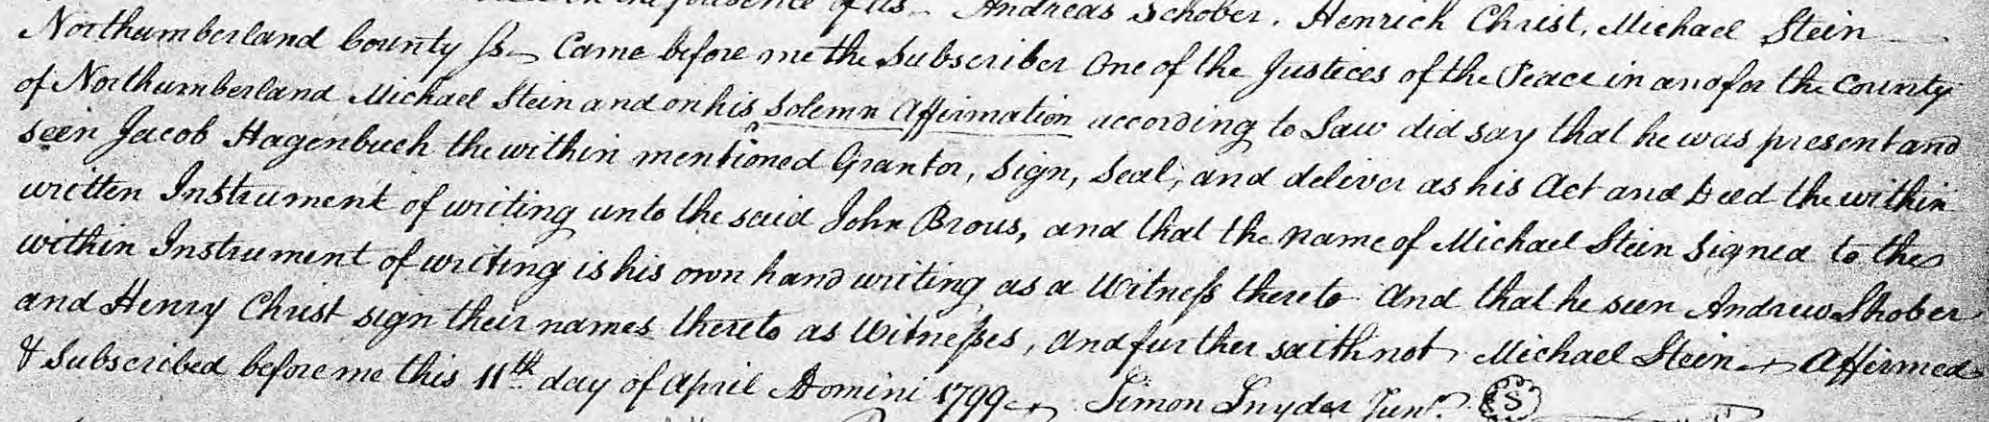 presence of us Andreas Schober. Henrich Christ, Michael Stein
Northumberland County ſs Came before me the Subscriber One of the Justices of the Peace in and for the County
of Northumberland Michael Stein and on his Solemn Affirmation according to Law did say that he was present and
seen Jacob Hagenbuch the within mentioned Grantor, Sign, Seal, and deliver as his Act and Deed the within
written Instrument of writing unto the said John Brous, and that the name of Michael Stein Signed to the
within Instrument of writing is his own hand writing as a Witneſs thereto And that he seen Andrew Shober
and Henry Christ sign their names thereto as Witneſses, And further saith not Michael Stein Affirmed
& Subscribed before me this 11th day of April Domini 1799 Simon Snyder Junr. S